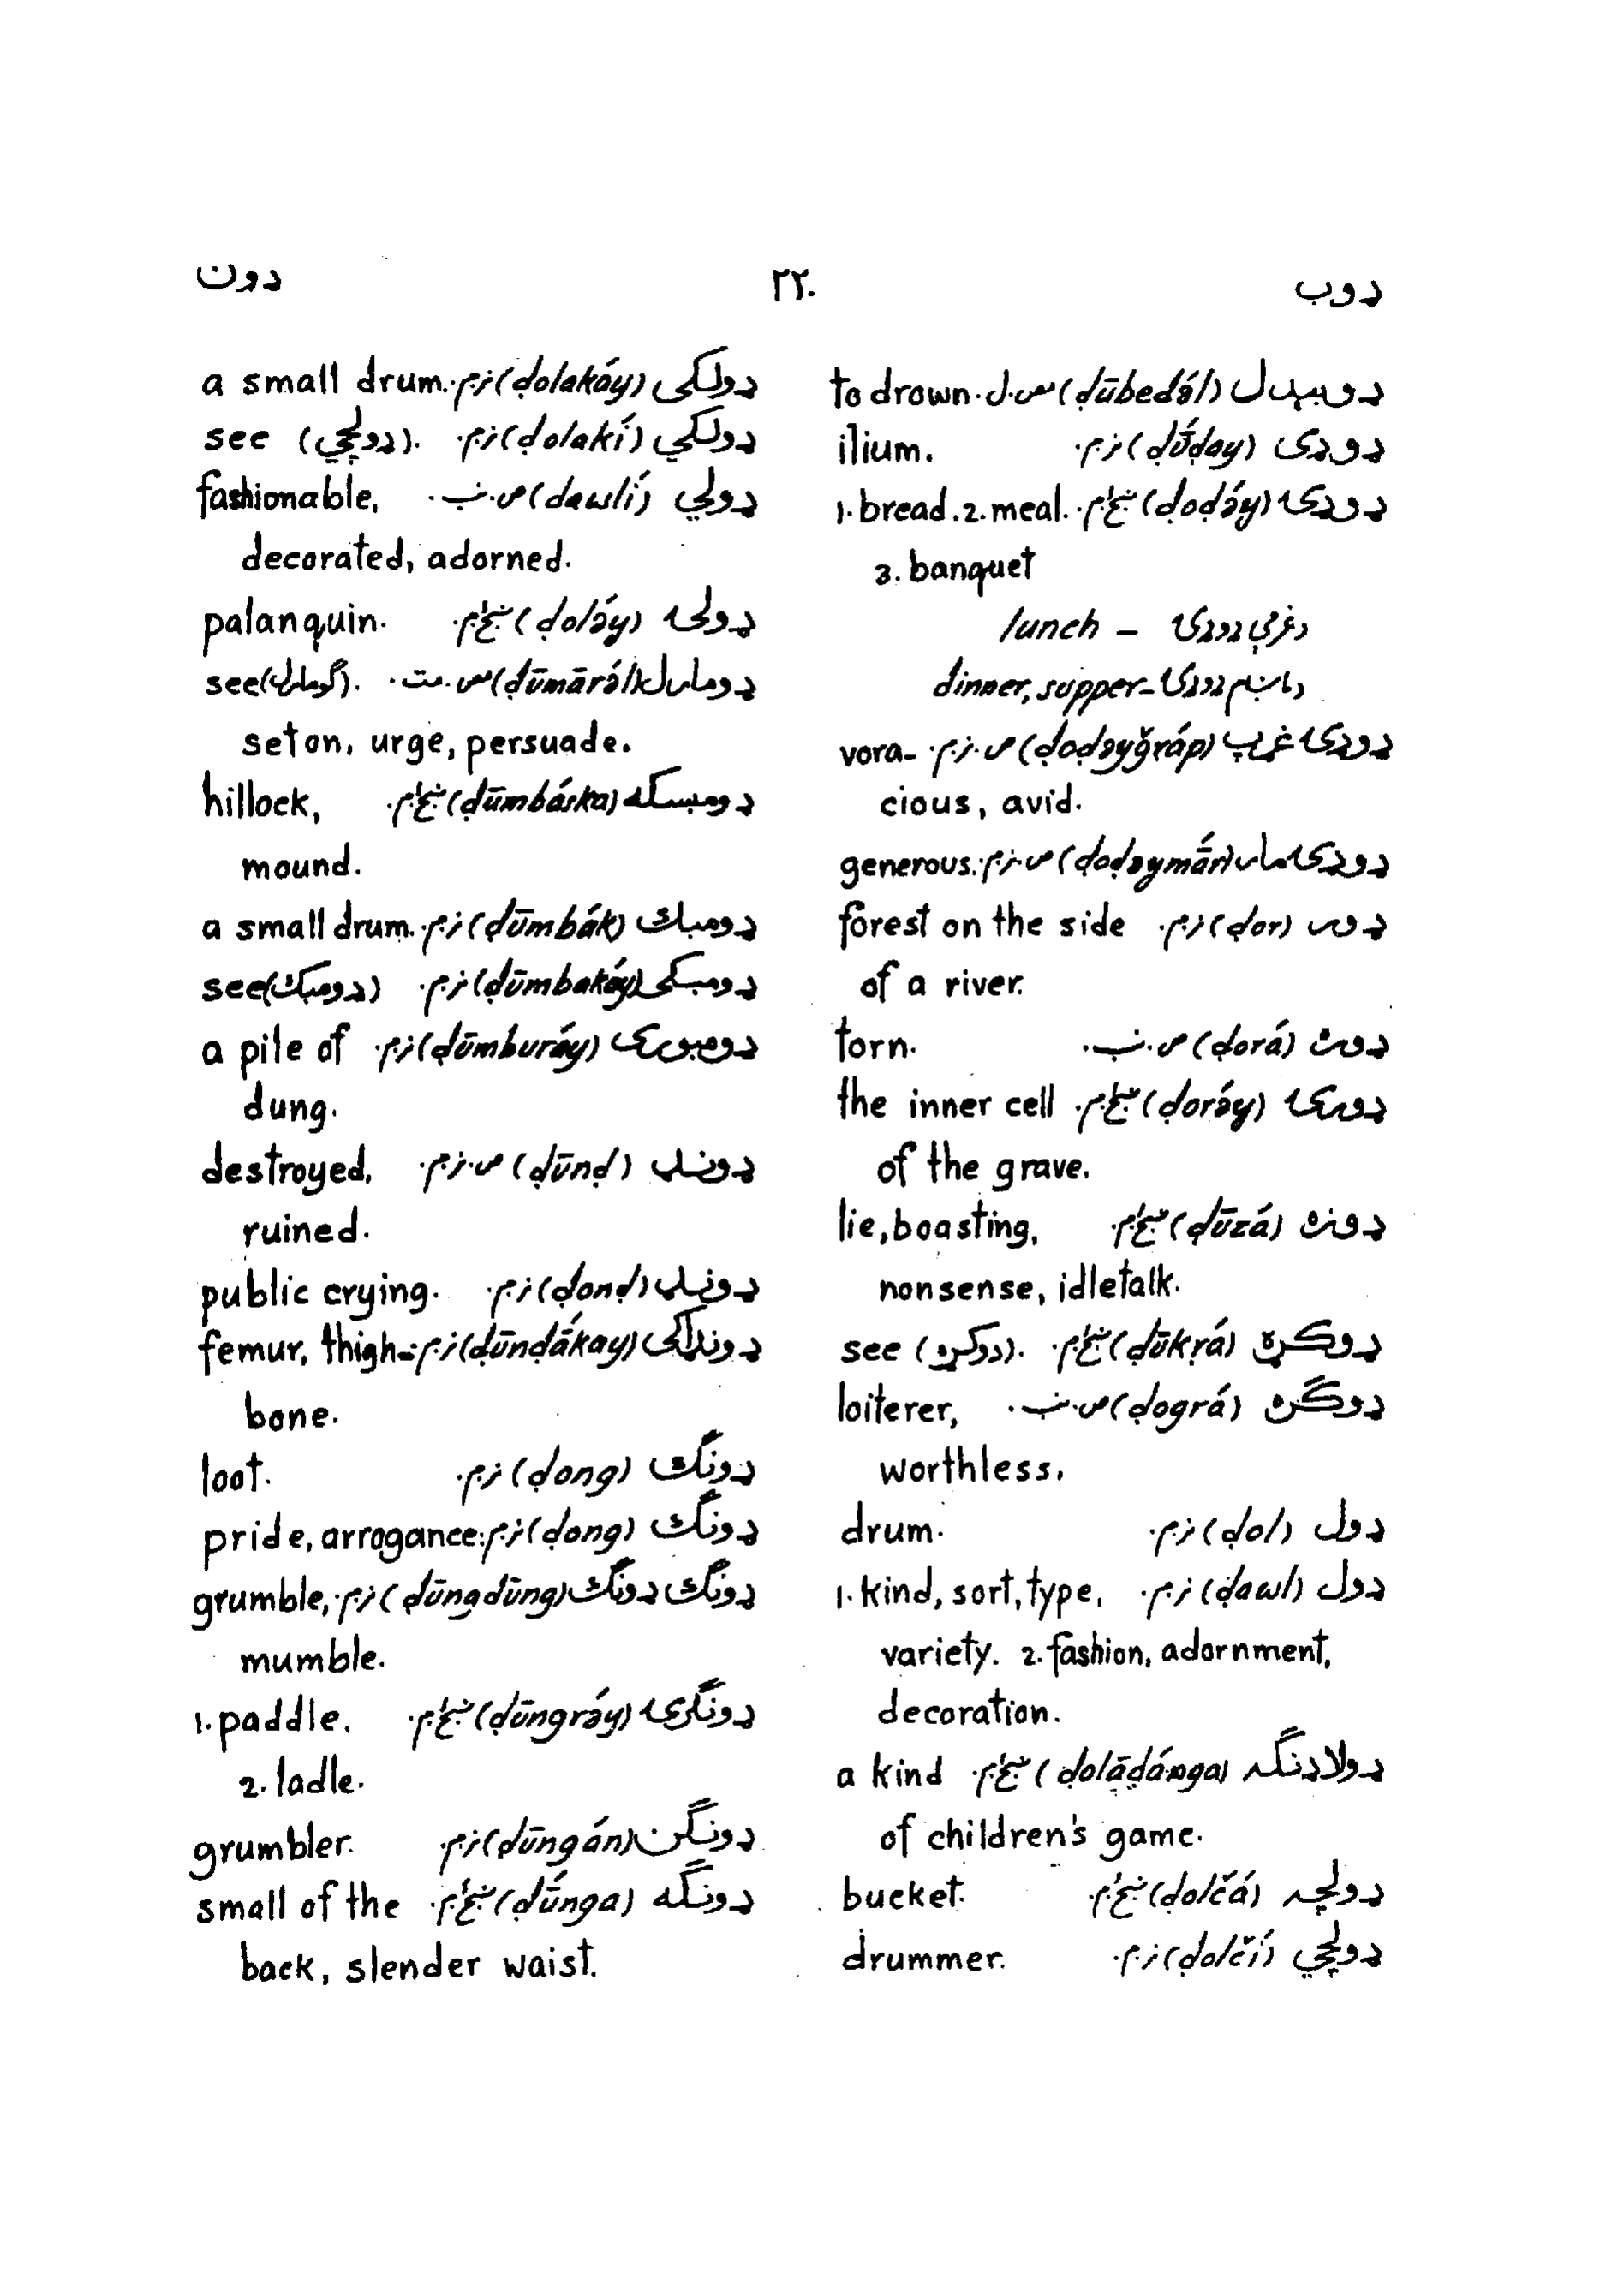 ډوب ٢٢٠ ډون
ډوبېدل (ḍūbedә́l) مص.ل. to drown.
ډوډی (ḍū́ḍay) نر.م. ilium.
ډوډۍ (ḍoḍә́y) ښځ.م. 1. bread. 2. meal.
3. banquet
دغرمې ډوډۍ – lunch
دماښام ډوډۍ – dinner, supper
ډوډۍ غرپ (ḍoḍәyğráp) ص.نر.م. vora-
cious, avid.
ډوډۍ مار (ḍoḍәymā́r) ص.نر.م. generous.
ډور (ḍor) نر.م. forest on the side
of a river.
ډوره (ḍorá) ص. torn.
ډورۍ (ḍorә́y) ښځ.م. the inner cell
of the grave.
ډوزه (ḍūzá) ښځ.م. lie, boasting,
nonsense, idle talk.
ډوکړه (ḍūkṛá) ښځ.م. see (ډوکره).
ډوګره (ḍográ) ص. loiterer,
worthless.
ډول (ḍol) نر.م. drum.
ډول (ḍawl) نر.م. 1. kind, sort, type,
variety. 2. fashion, adornment,
decoration.
ډولاډنګه (ḍolāḍánga) ښځ.م. a kind
of children's game.
ډولچه (ḍolčá) ښځ.م. bucket.
ډولچي (ḍolčí) نر.م. drummer.
ډولکی (ḍolakáy) نر.م. a small drum.
ډولکي (ḍolakí) نر.م. see (ډولچي).
ډولي (ḍawlí) ص. fashionable,
decorated, adorned.
ډولۍ (ḍolә́y) ښځ.م. palanquin.
ډومارل (ḍūmārә́l) مص.مت. see (ګومارل).
set on, urge, persuade.
ډومبسکه (ḍūmbáska) ښځ.م. hillock,
mound.
ډومبك (ḍūmbák) نر.م. a small drum.
ډومبکی (ḍūmbakáy) نر.م. see (ډومبك)
ډومبوری (ḍūmburáy) نر.م. a pile of
dung.
ډونډ (ḍūnḍ) ص.نر.م. destroyed,
ruined.
ډونډ (ḍonḍ) نر.م. public crying.
ډونډاکی (ḍūnḍā́kay) نر.م. femur, thigh-
bone.
ډونګ (ḍong) نر.م. loot.
ډونګ (ḍong) نر.م. pride, arrogance.
ډونګ ډونګ (ḍūngḍūng) نر.م. grumble,
mumble.
ډونګرۍ (ḍūngrә́y) ښځ.م. 1. paddle.
2. ladle.
ډونګن (ḍūngán) نر.م. grumbler.
ډونګه (ḍū́nga) ښځ.م. small of the
back, slender waist.